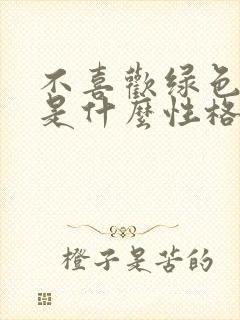 不喜歡绿色
是什麼性格
橙子是苦的